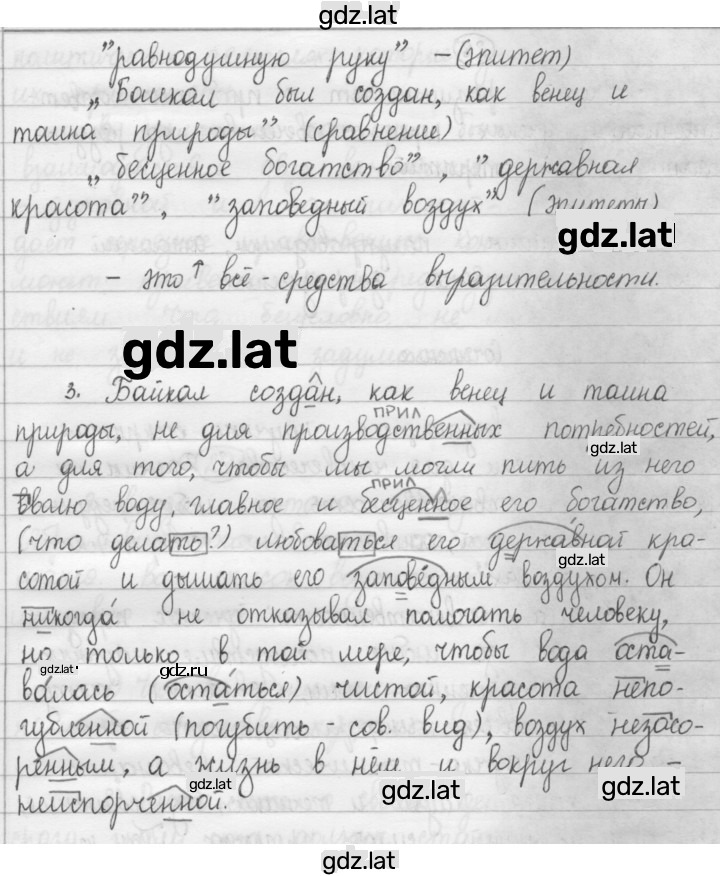 gdz.lat
"равнодушную руку" – (эпитет)
„Байкал был создан, как венец и
тайна природы" (сравнение)
„бесценное богатство", "державная
красота", "заповедный воздух" (эпитеты)
gdz.lat
– это ↑ всё средства выразительности.
gdz.lat
3. Байкал создан, как венец и тайна
ПРИЛ
природы, не для производственных потребностей,
gdz.lat
а для того, чтобы мы могли пить из него
ПРИЛ
вволю воду, главное и бесценное его богатство,
(что делать?) любоваться его державной кра-
gdz.lat
сотой и дышать его заповедным воздухом. Он
никогда не отказывал помогать человеку,
но только в той мере, чтобы вода оста-
gdz.lat gdz.ru
валась (остаться) чистой, красота непо-
губленной (погубить – сов. вид), воздух незасо-
ренным, а жизнь в нём и вокруг него –
gdz.lat gdz.lat gdz.lat
неиспорченной.
gdz.lat